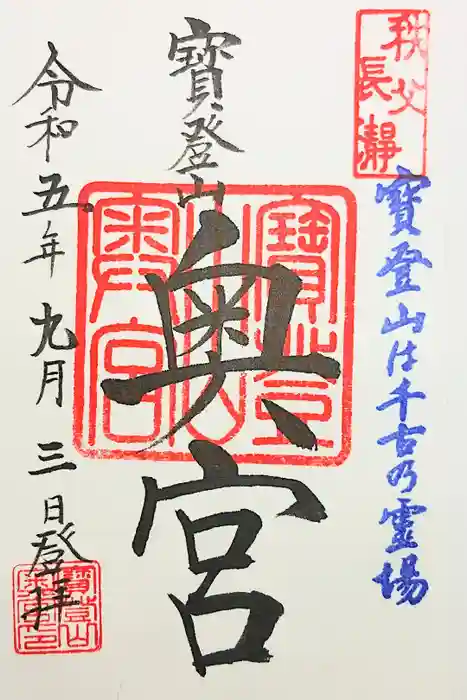 秩父
長瀞
寶登山は千古乃霊場
寶登山
奥宮
寶登山
奥宮
令和五年九月三日登拝
寶登山
奥宮之印